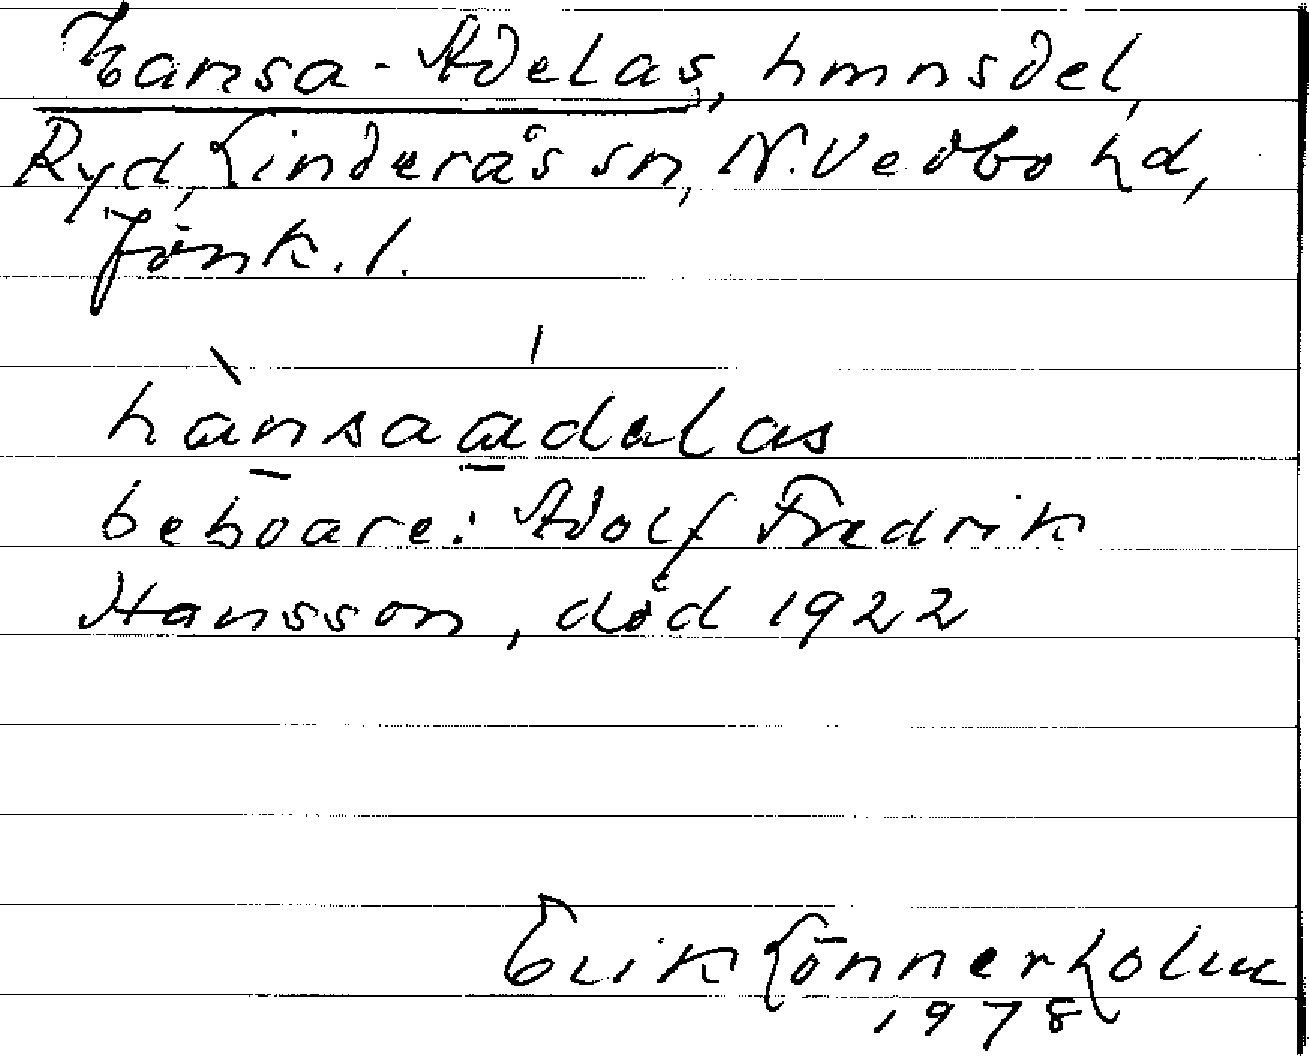 Hansa-Adelas, hmnsdel,
Ryd, Linderås sn, N. Vedbo hd,
Jönk. l.
hànsaadəlas
beboare: Adolf Fredrik
Hansson, död 1922
Erik Lönnerholm
1978